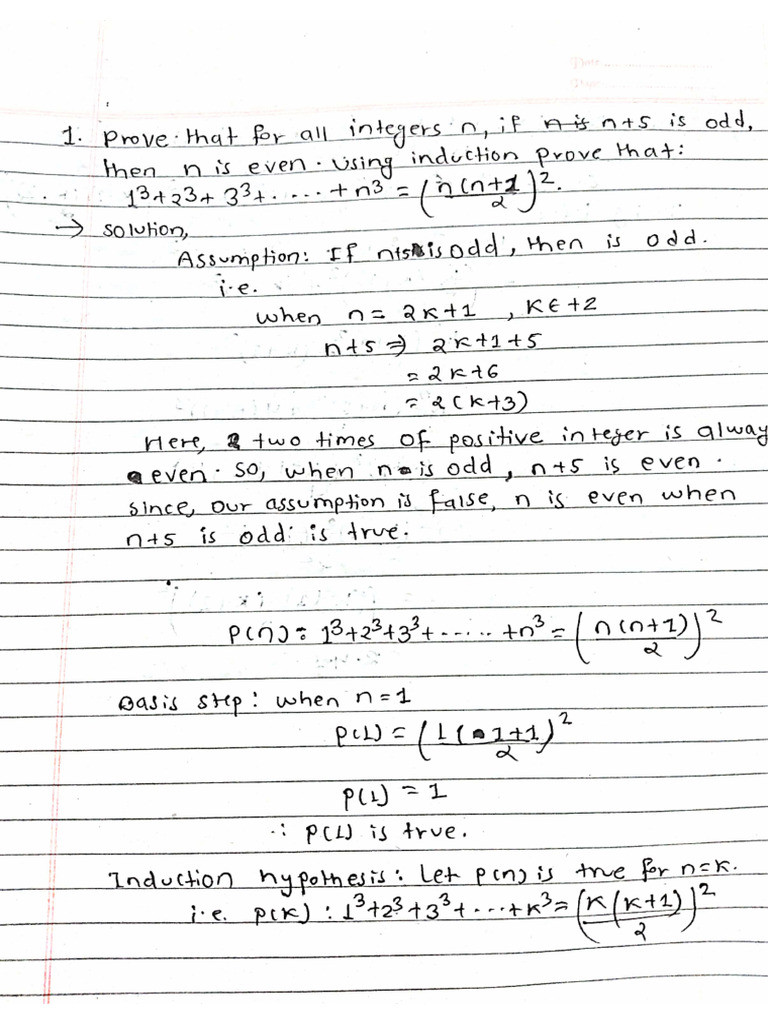 Date
Page
1. Prove that for all integers n, if n is n+5 is odd,
then n is even. Using induction prove that:
1³+2³+3³+.....+n³ = (n(n+1)/2)².
→ solution,
Assumption: If n+5 is odd, then is odd.
i.e.
when n = 2k+1 , k∈+Z
n+5 ⇒ 2k+1+5
= 2k+6
= 2(k+3)
Here, two times of positive integer is alway
even. so, when n is odd, n+5 is even.
since, our assumption is false, n is even when
n+5 is odd is true.
P(n) = 1³+2³+3³+.....+n³ = (n(n+1)/2)²
Basis step: when n=1
P(1) = (1(1+1)/2)²
P(1) = 1
∴ P(1) is true.
Induction hypothesis: Let P(n) is true for n=k.
i.e. P(k) : 1³+2³+3³+...+k³ = (k(k+1)/2)²